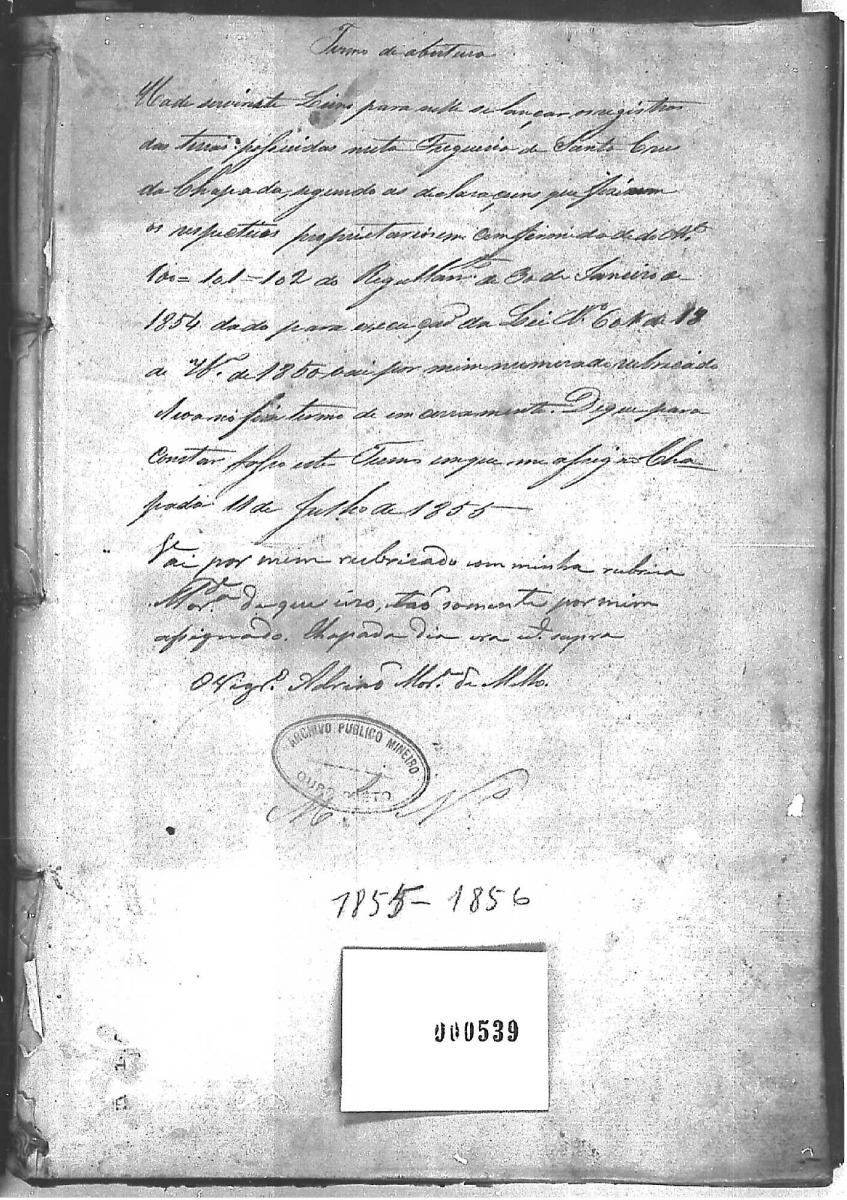 Termo de abertura
Hade servir este Livro para nelle se lançar, os registros
das terras possuidas nesta Freguesia de Santa Cruz
da Chapada, segundo as declaraçoens que fizerem
os respectivos proprietarios em comformidade do Art.º
100= 101= 102 do Regullam.to de 30 de Janeiro de
1854 dado para execuçaõ da Lei Nº 601 de 18
de 7br.º de 1850, vai por mim numerado rubricado
no fim termo de encerramento. Deque para
constar passo este Termo em que me assigno Cha
pada 11 de Julho de 1855
Vai por mim rubricado com minha rubrica
Mor.ª de que uzo, taõ somente por mim
assignado. Chapada dia era ut supra
O Vigr.º Adriaõ Mor.ª de Mello.
ARCHIVO PUBLICO MINEIRO
OURO PRETO
M. N.º
1855 - 1856
000539